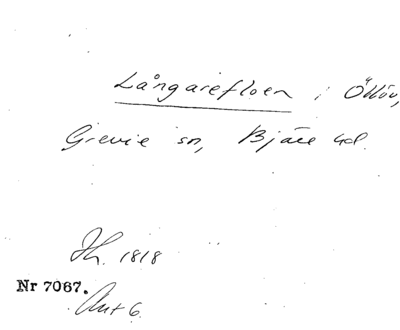 Långarefloen i Öllöv,
Grevie sn, Bjäre hd.
Jh. 1818
Nr 7067.
Ant 6.